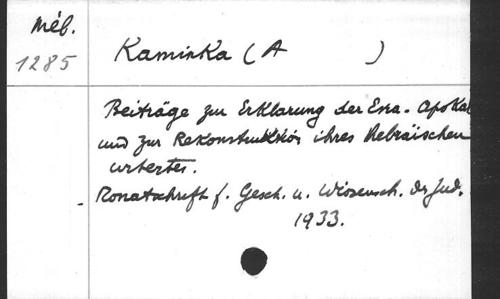 Méb.
1285
Kaminka (A )
Beiträge zur Erklarung der Esra. Apokal
und zur Rekonstruktion ihres Hebräischen
urtextes.
Monatschrift f. Gesch. u. Wissensch. des Jud.
1933.